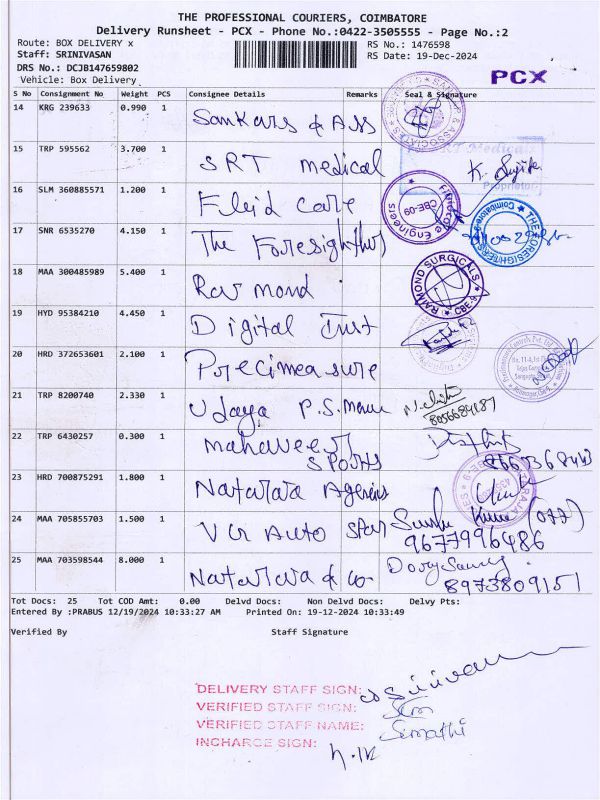 THE PROFESSIONAL COURIERS, COIMBATORE
Delivery Runsheet - PCX - Phone No.:0422-3505555 - Page No.:2
Route: BOX DELIVERY x RS No.: 1476598
Staff: SRINIVASAN RS Date: 19-Dec-2024
DRS No.: DCJB147659802
Vehicle: Box Delivery PCX
S No Consignment No Weight PCS Consignee Details Remarks Seal & Signature
14 KRG 239633 0.990 1 Sankars & Ass
15 TRP 595562 3.700 1 SRT medical
16 SLM 360885571 1.200 1 Fluid care
17 SNR 6535270 4.150 1 The Foresighters
18 MAA 300485989 5.400 1 Raymond
RAIMOND SURGICALS CBE-9
19 HYD 95384210 4.450 1 Digital Trust
20 HRD 372653601 2.100 1 Precimeasure
21 TRP 8200740 2.330 1 Udaya P.S.
22 TRP 6430257 0.300 1 Mahaveer Sports
23 HRD 700875291 1.800 1 Nataraja Agencies
24 MAA 705855703 1.500 1 VG Auto Star
9677996486
25 MAA 703598544 8.000 1 Nataraja & Co
8973809151
Tot Docs: 25 Tot COD Amt: 0.00 Delvd Docs: Non Delvd Docs: Delvy Pts:
Entered By :PRABUS 12/19/2024 10:33:27 AM Printed On: 19-12-2024 10:33:49
Verified By Staff Signature
DELIVERY STAFF SIGN:
VERIFIED STAFF SIGN:
VERIFIED STAFF NAME: Sumathi
INCHARGE SIGN: